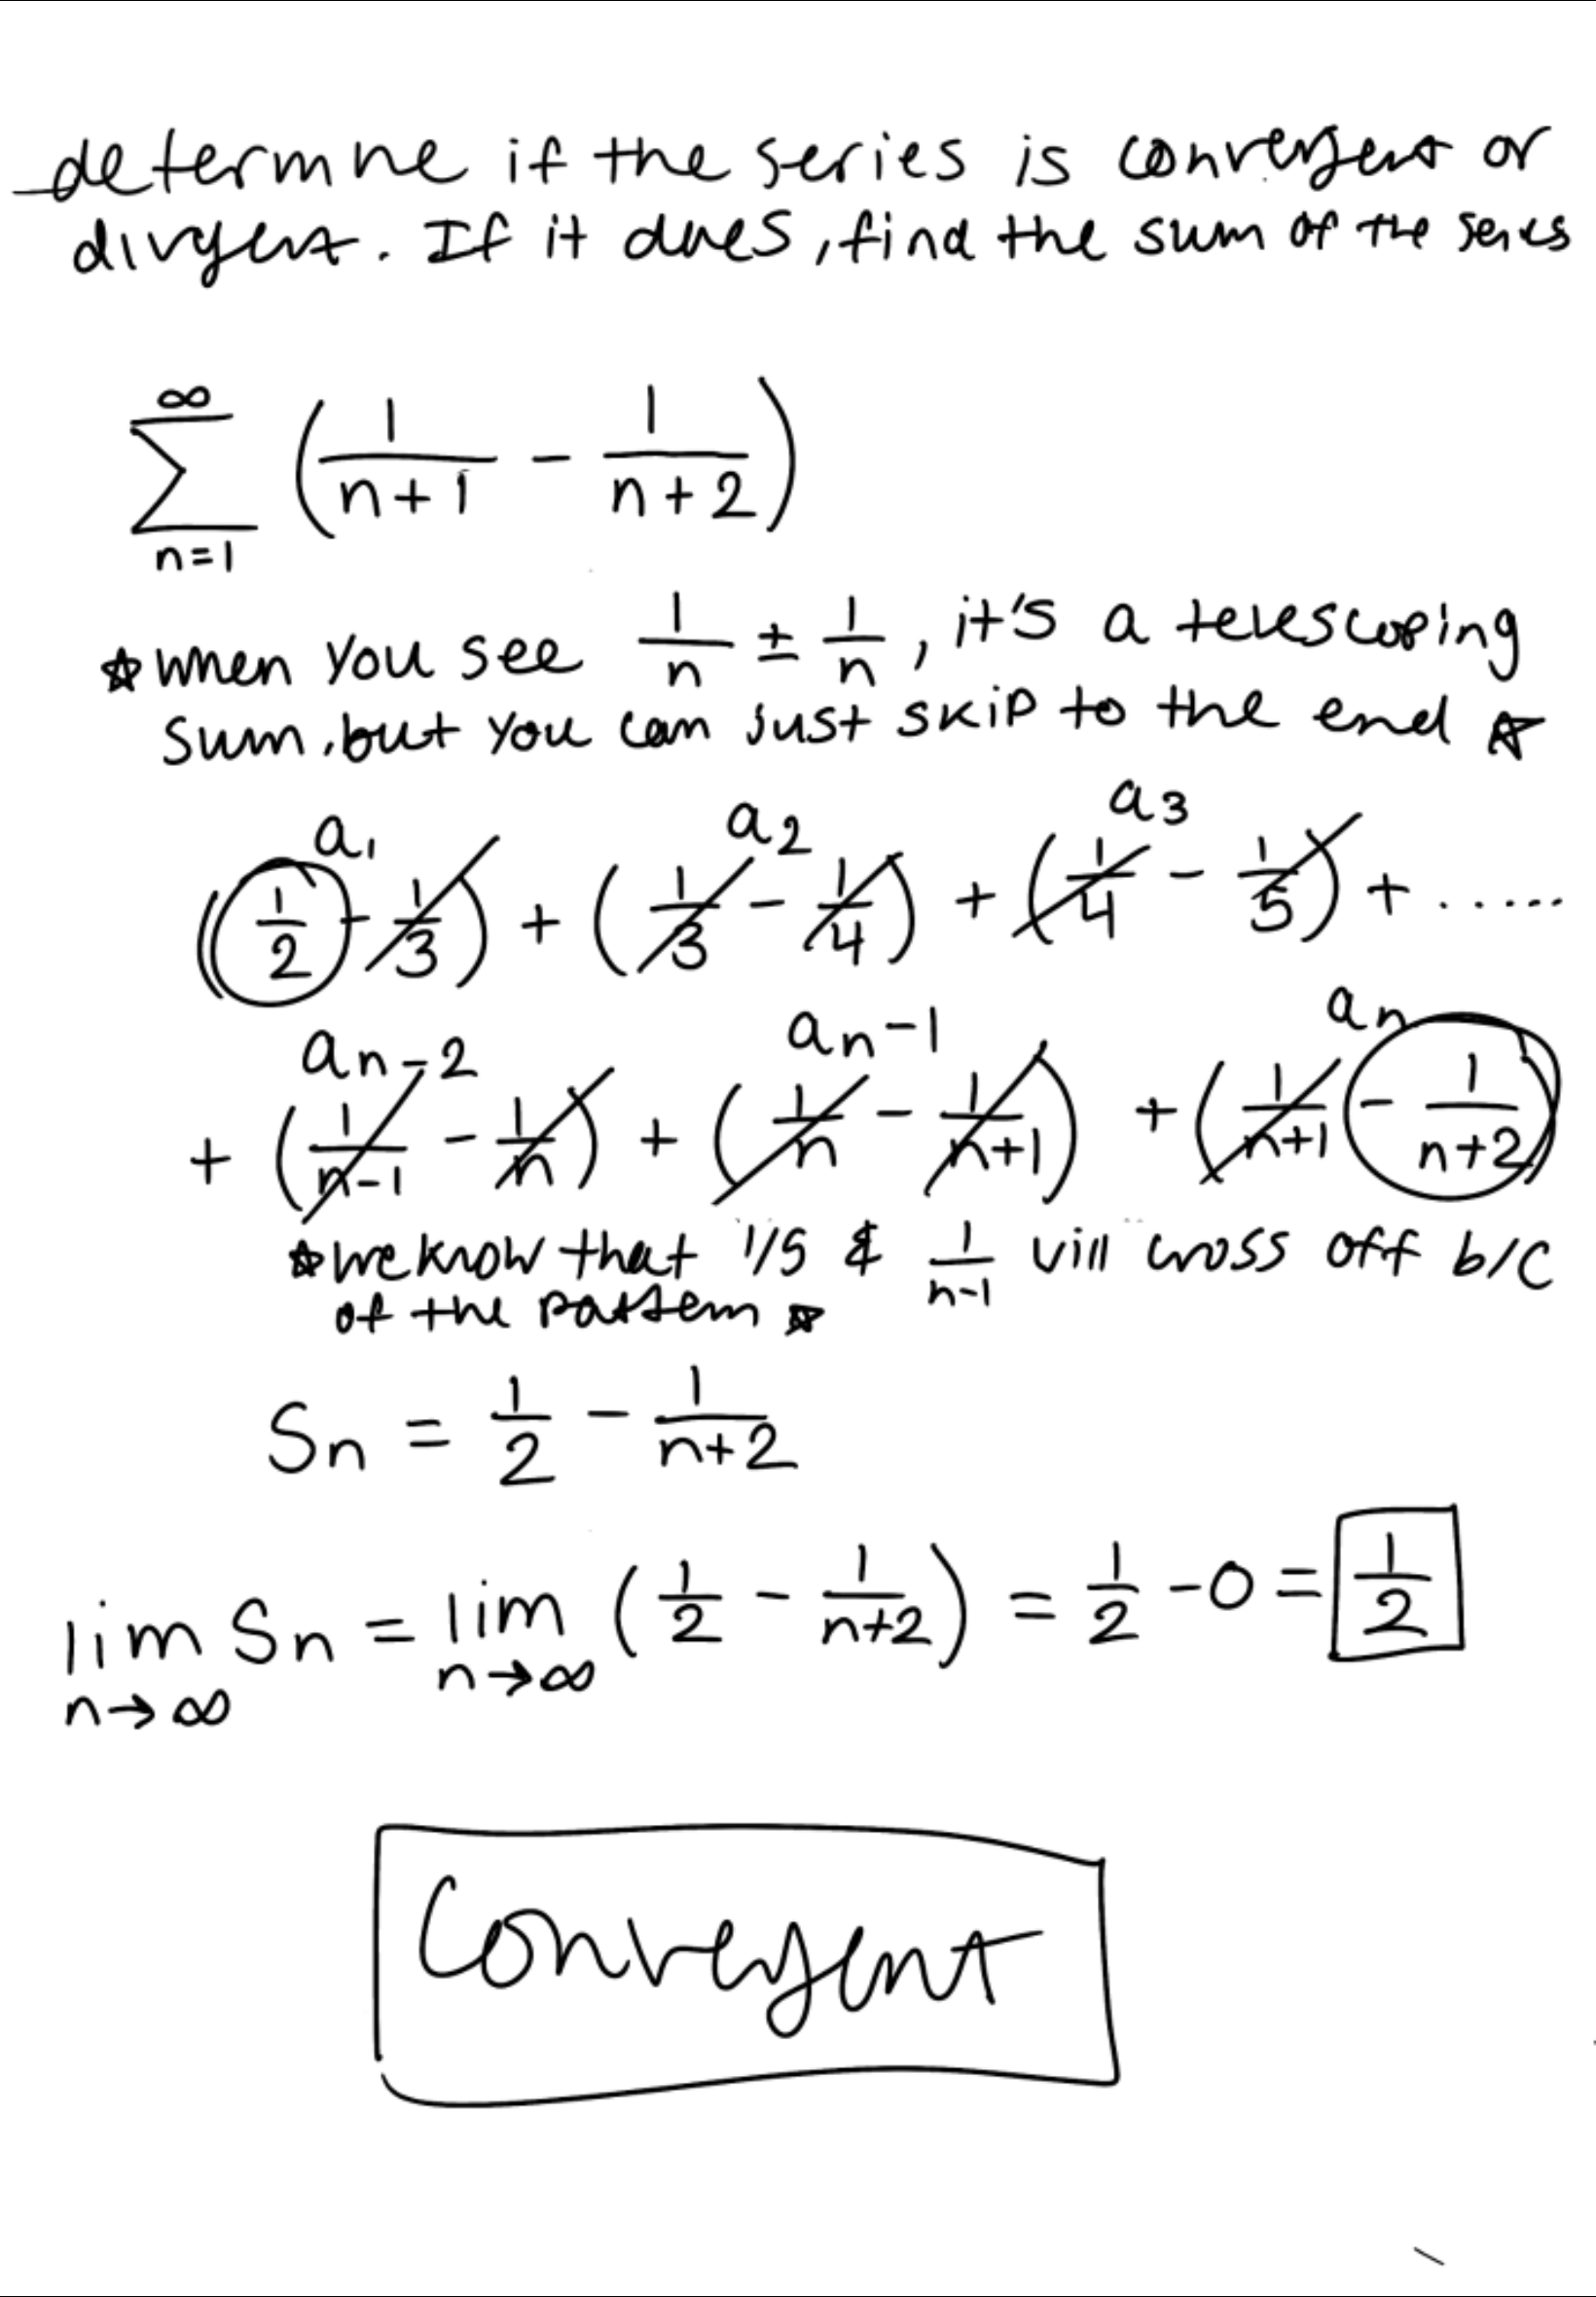 determne if the series is convergent or
divgent. If it does, find the sum of the series
∞
∑ (1/(n+1) - 1/(n+2))
n=1
☆ when you see 1/n ± 1/n, it's a telescoping
sum, but you can just skip to the end ☆
a1 a2 a3
(1/2 - 1/3) + (1/3 - 1/4) + (1/4 - 1/5) + ......
an-2 an-1 an
+ (1/(n-1) - 1/n) + (1/n - 1/(n+1)) + (1/(n+1) - 1/(n+2))
☆ we know that 1/5 & 1/(n-1) vill cross off b/c
of the pattern ☆
Sn = 1/2 - 1/(n+2)
lim Sn = lim (1/2 - 1/(n+2)) = 1/2 - 0 = 1/2
n→∞ n→∞
Convergent